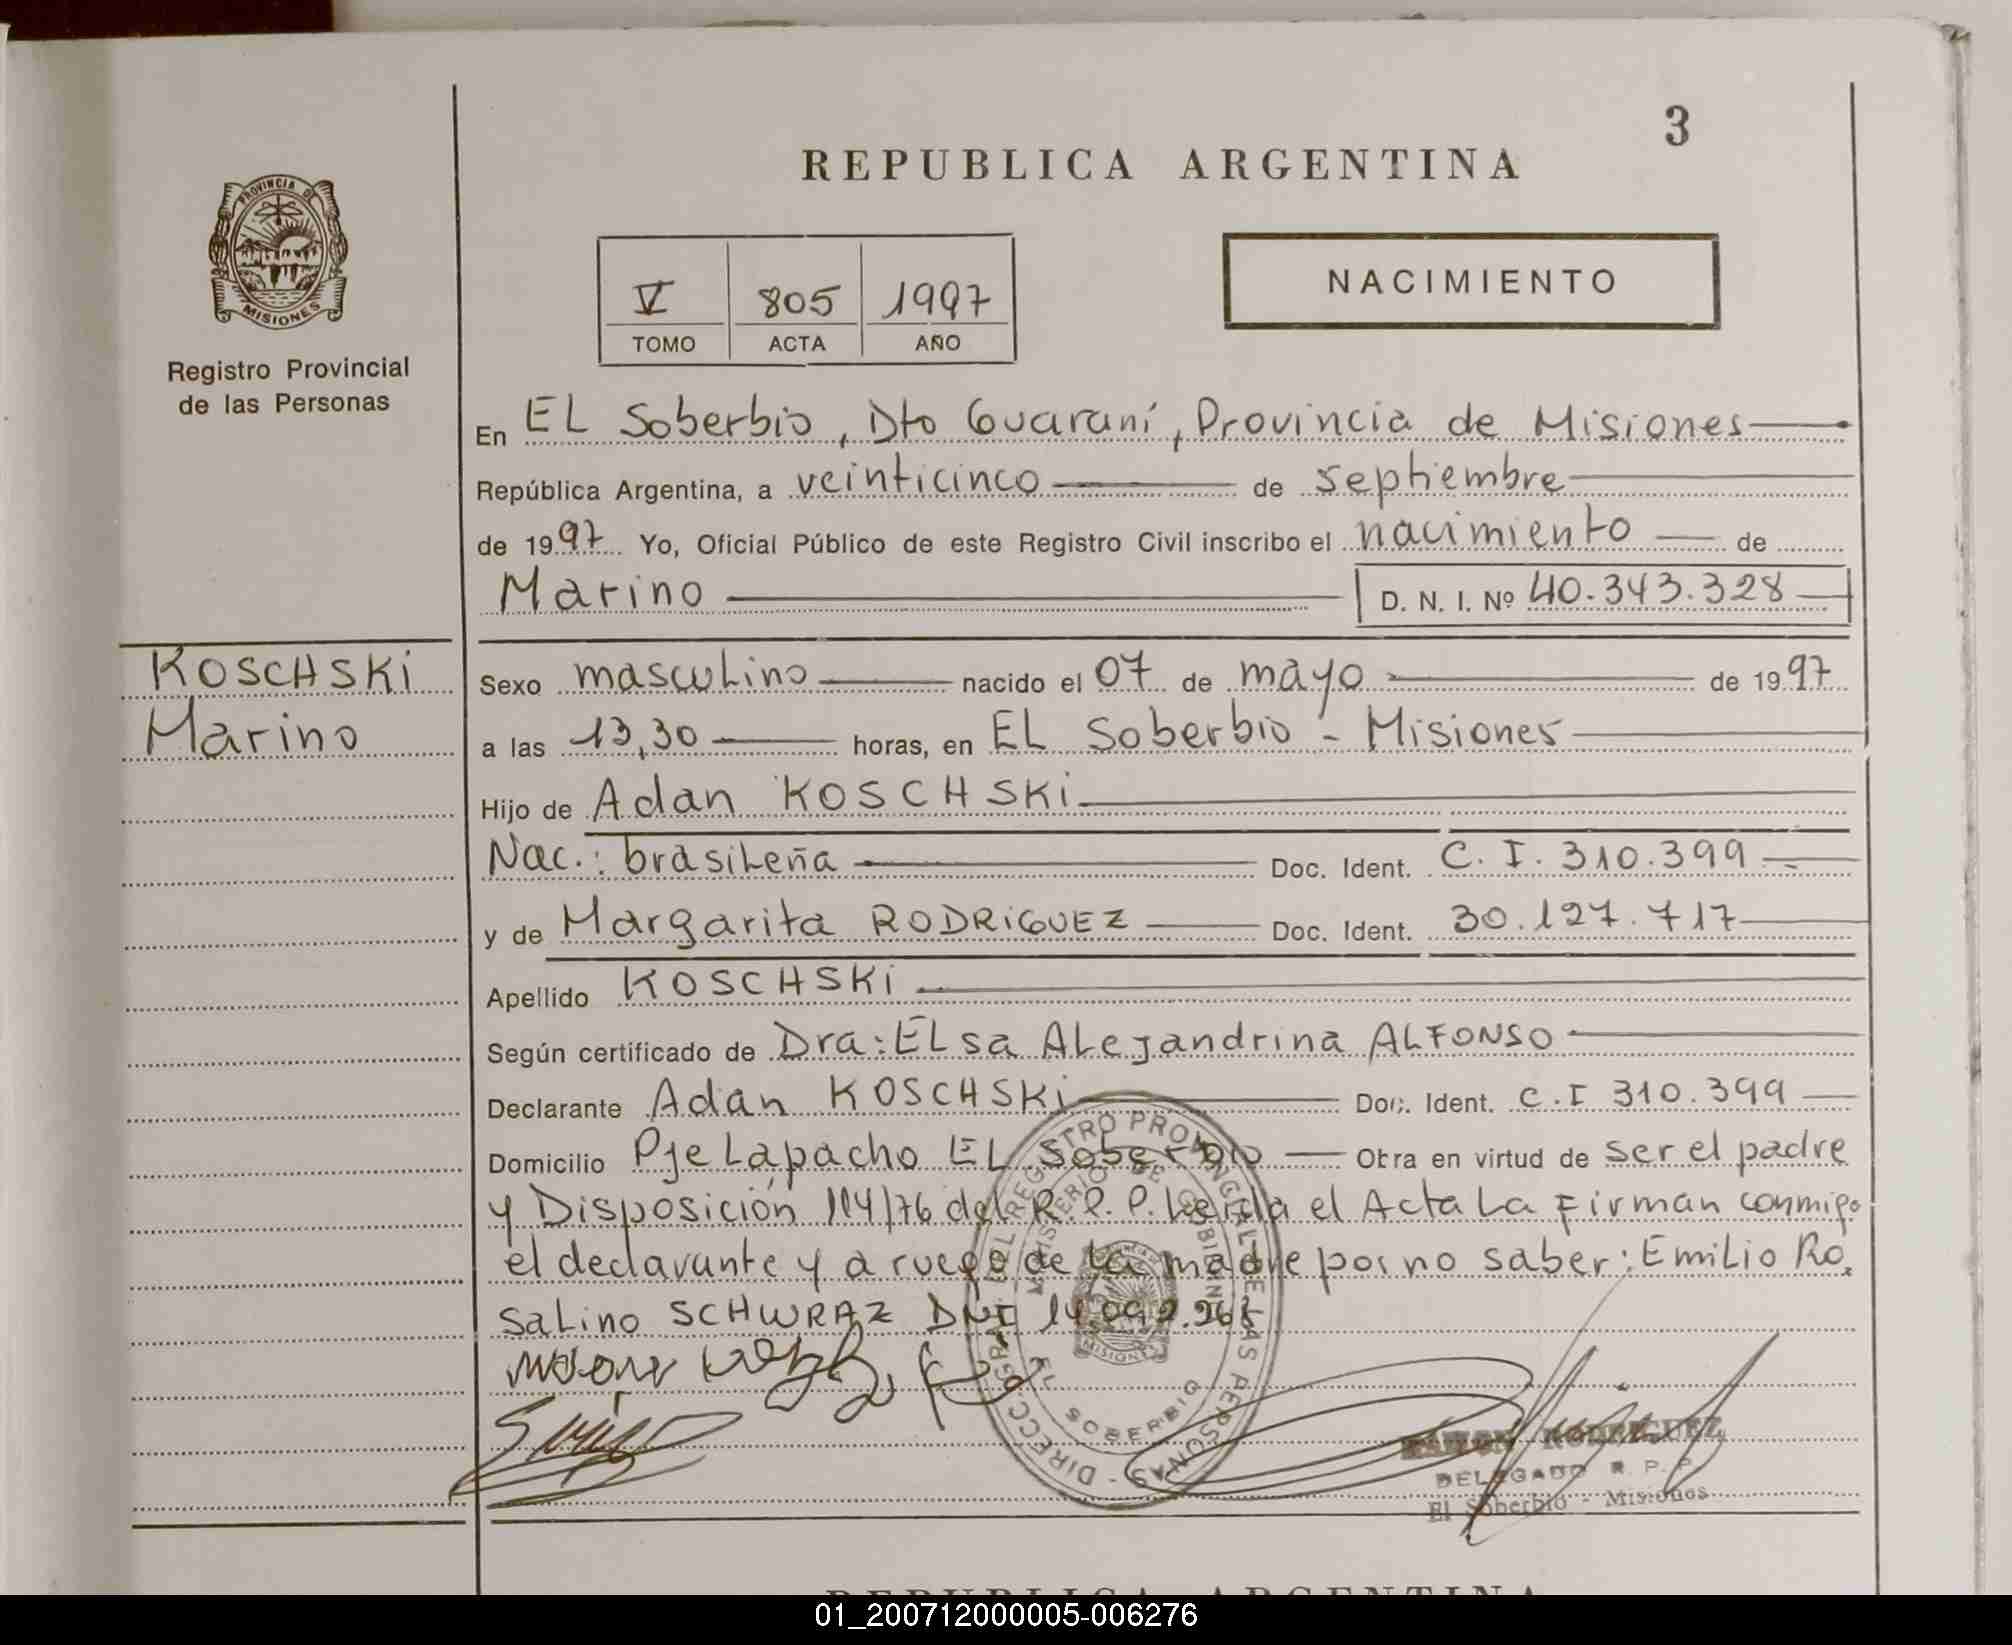 3
REPUBLICA ARGENTINA
PROVINCIA DE
MISIONES
Registro Provincial
de las Personas
V 805 1997
TOMO ACTA AÑO
NACIMIENTO
En EL Soberbio, Dto Guaraní, Provincia de Misiones
República Argentina, a veinticinco de septiembre
de 1997 Yo, Oficial Público de este Registro Civil inscribo el nacimiento de
Marino D. N. I. Nº 40.343.328
KOSCHSKi
Marino
Sexo masculino nacido el 07 de mayo de 1997
a las 13,30 horas, en EL Soberbio - Misiones
Hijo de Adan KOSCHSKi
Nac.: brasileña Doc. Ident. C. I. 310.399
y de Margarita RODRiGUEZ Doc. Ident. 30.127.717
Apellido KOSCHSKi
Según certificado de Dra: ELsa ALejandrina ALFONSO
Declarante Adan KOSCHSKi Doc. Ident. C.I 310.399
Domicilio Pje Lapacho EL Soberbio Obra en virtud de ser el padre
y Disposición 114/76 del R. P. P. Leida el Acta La Firman conmigo
el declarante y a ruego de la madre por no saber: Emilio Ro.
salino SCHWRAZ DNI 14.092.
DIRECC. GRAL. DEL REGISTRO PROVINCIAL DE LAS PERSONAS
MINISTERIO DE GOBIERNO
MISIONES
EL SOBERBIO
RODRIGUEZ
DELEGADO R. P. P.
El Soberbio - Misiones
REPUBLICA ARGENTINA
01_200712000005-006276